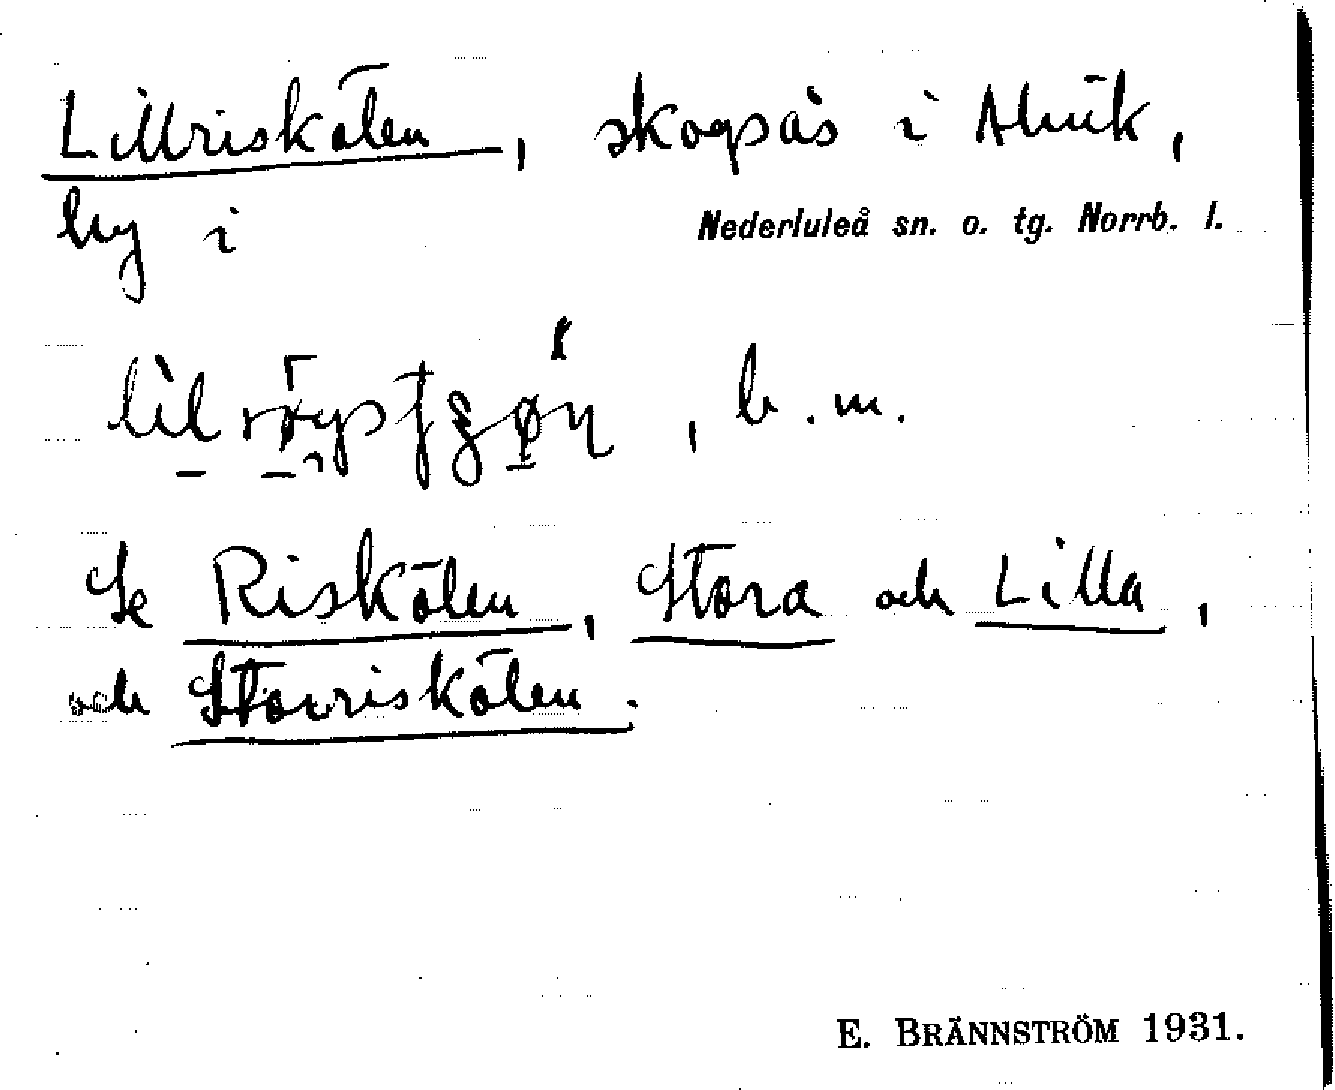 Lillriskölen, skogsås i Alvik,
by i Nederluleå sn. o. tg. Norrb. l.
, b. m.
Se Riskölen, Stora och Lilla,
och Storriskölen.
E. BRÄNNSTRÖM 1931.